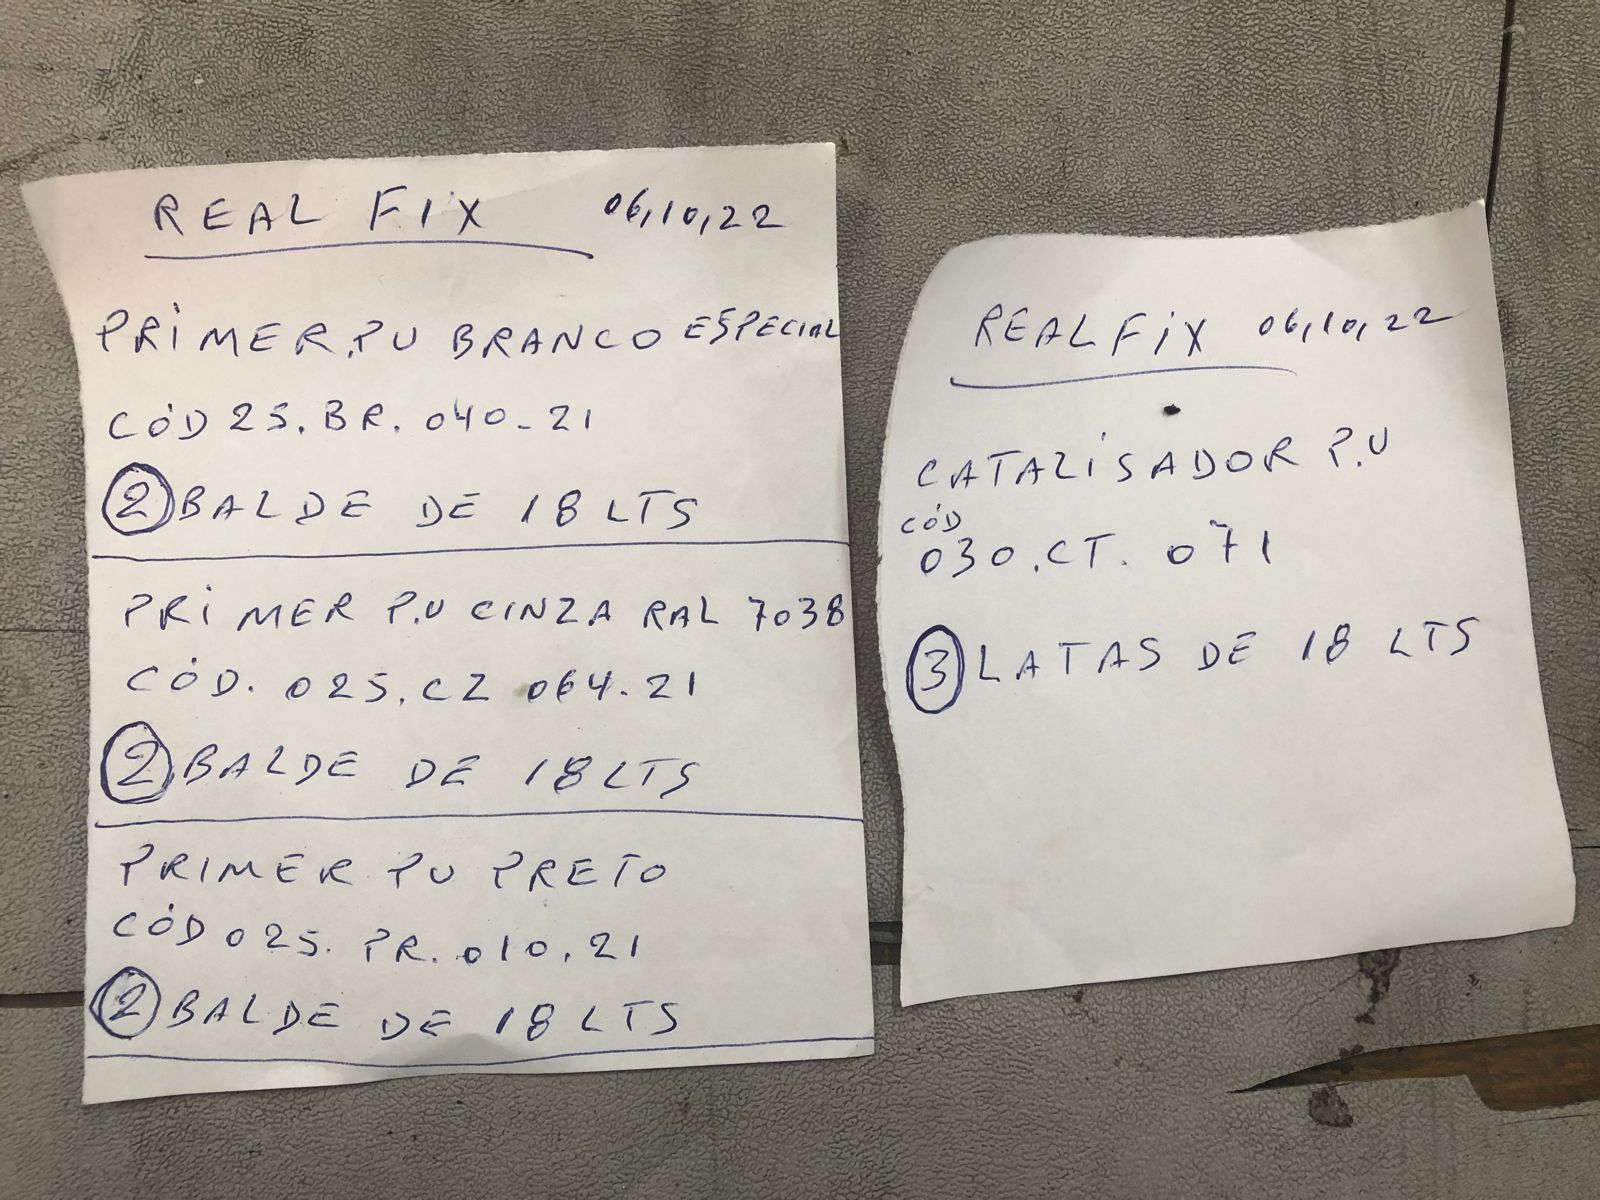 REAL FIX 06,10,22
PRIMER.PU BRANCO ESPECIAL
CÓD 25.BR.040-21
2 BALDE DE 18 LTS
PRIMER P.U CINZA RAL 7038
CÓD. 025.CZ 064-21
2 BALDE DE 18 LTS
PRIMER PU PRETO
CÓD 025.PR.010.21
2 BALDE DE 18 LTS
REAL FIX 06,10,22
CATALISADOR P.U
CÓD
030.CT.071
3 LATAS DE 18 LTS